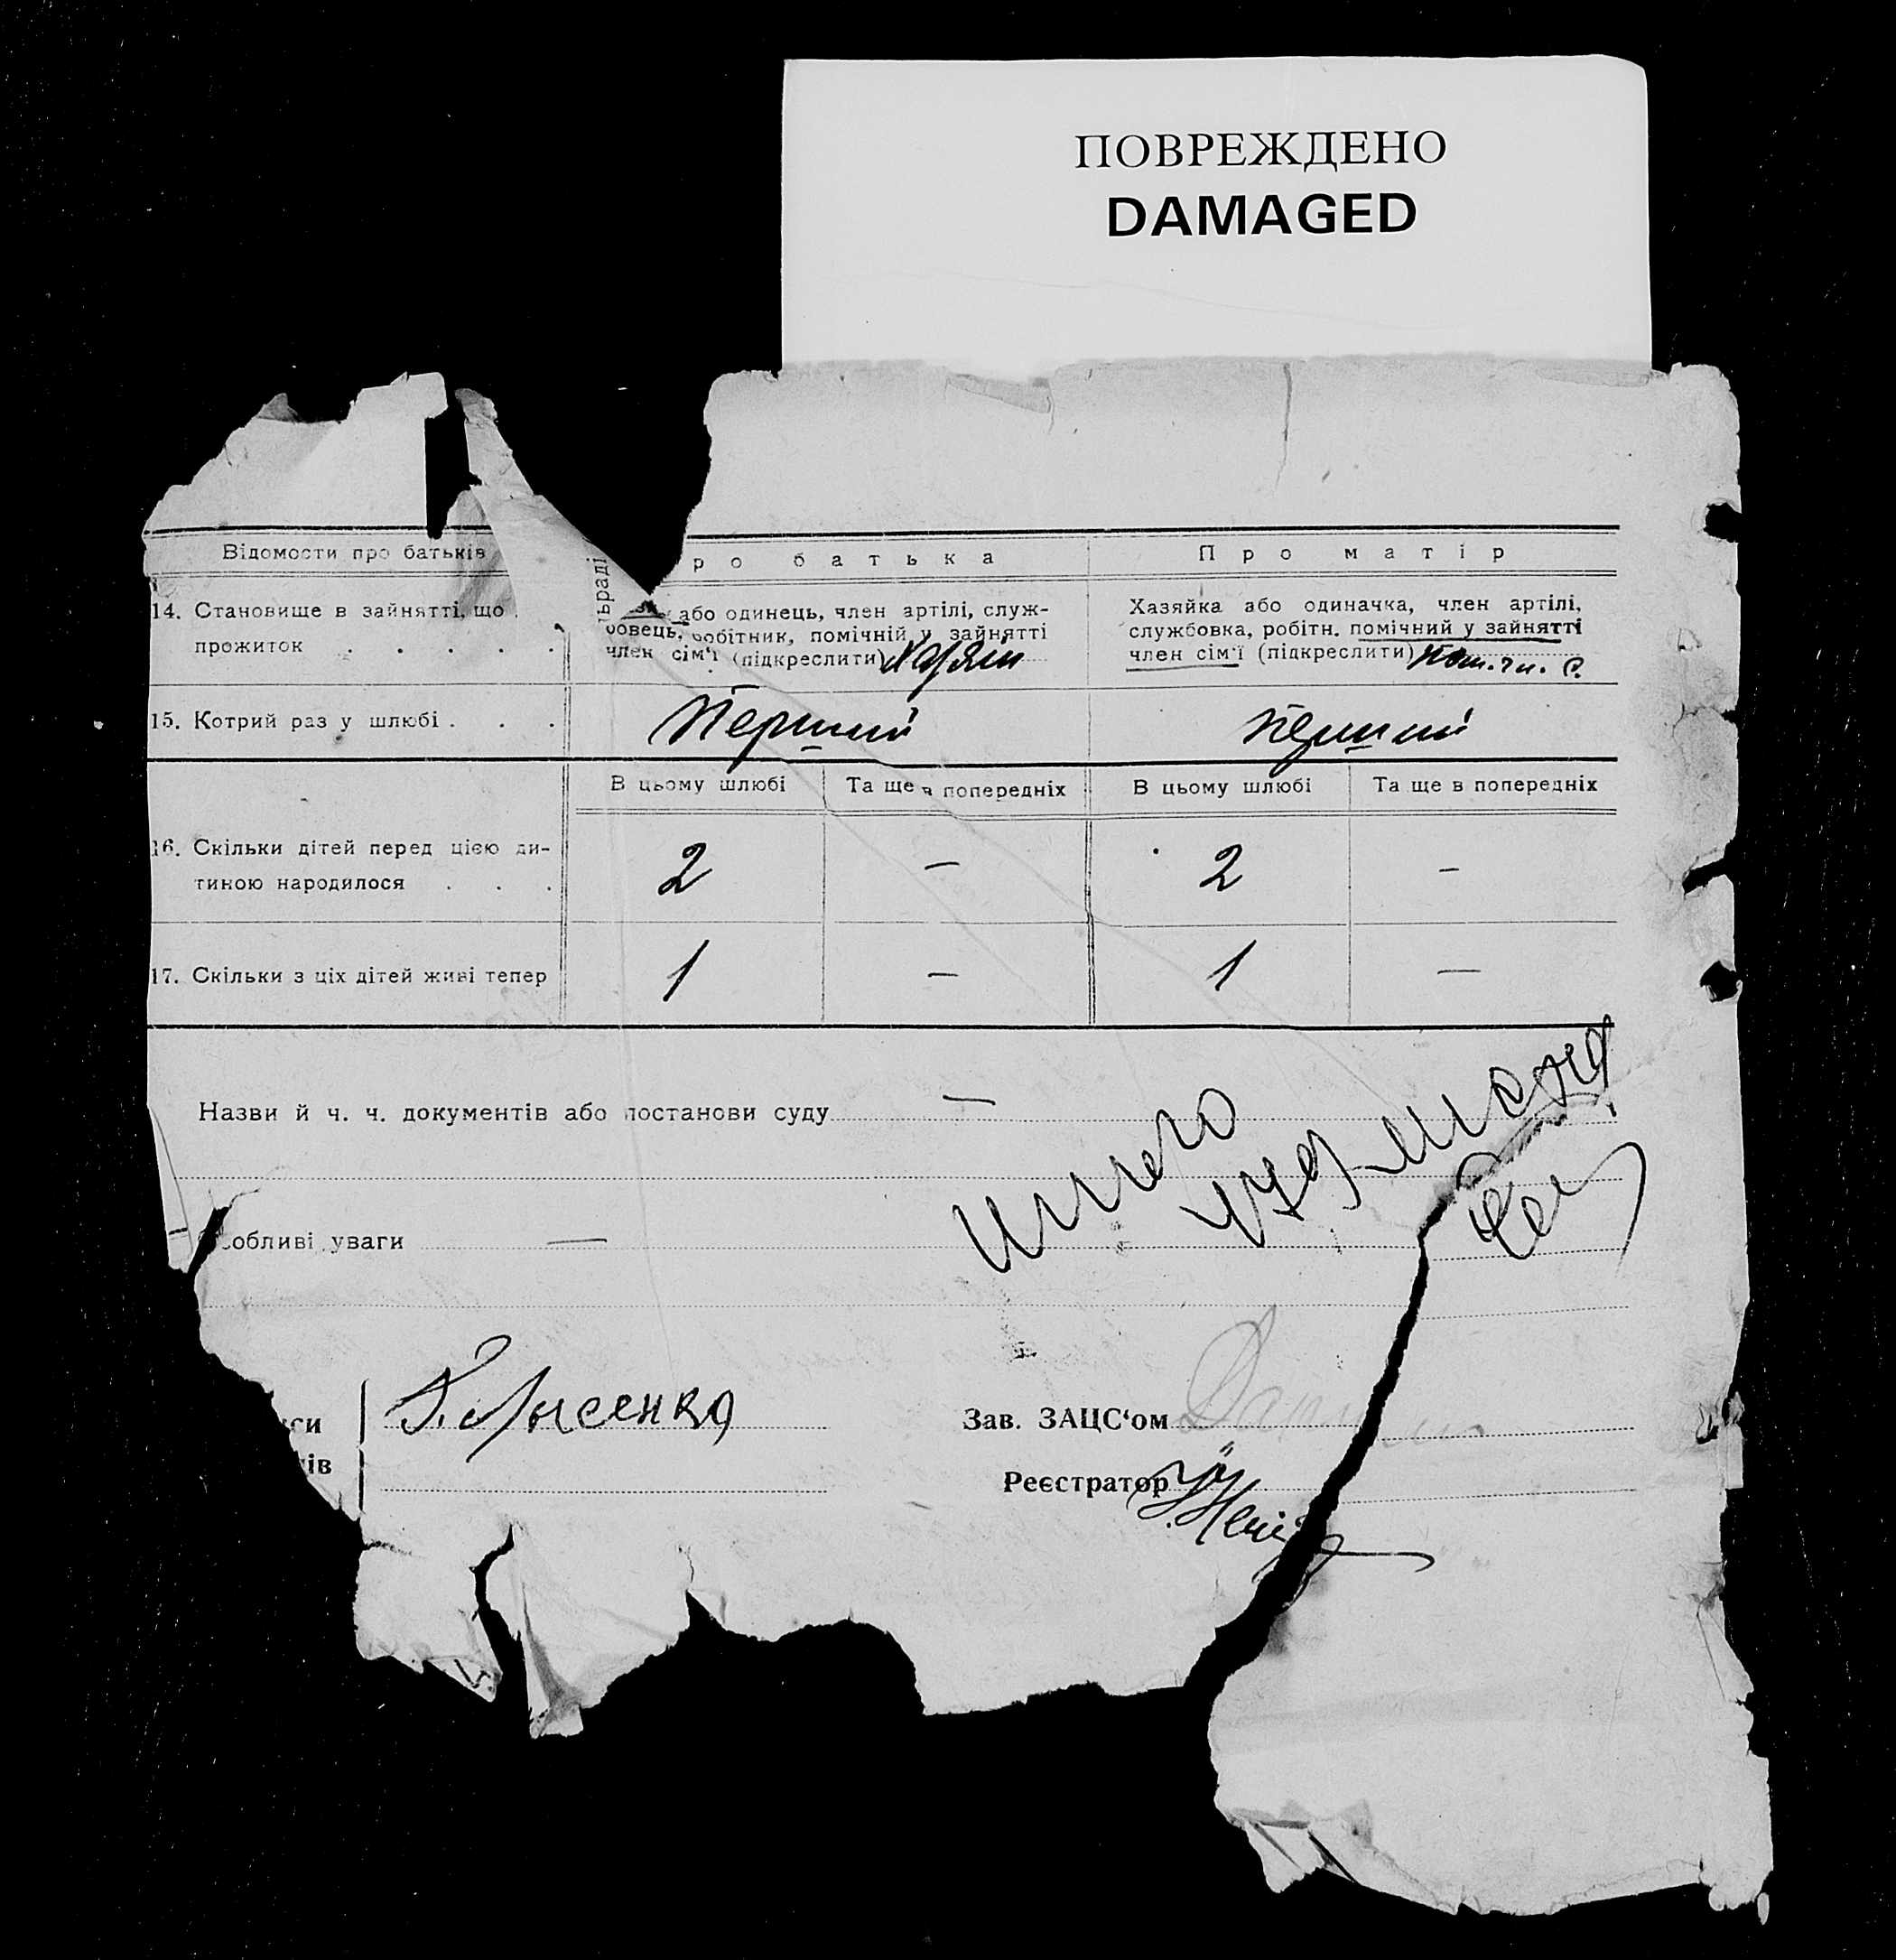 ПОВРЕЖДЕНО
DAMAGED
Відомости про батьків
ро батька
Про матір
ьраді
14. Становище в зайнятті, що
прожиток . . . . .
або одинець, член артілі, служ-
бовець, робітник, помічній у зайнятті
член сім'ї (підкреслити) Хазяїн
Хазяйка або одиначка, член артілі,
службовка, робітн. помічний у зайнятті
член сім'ї (підкреслити) Пом. чл. с.
15. Котрий раз у шлюбі . . .
Перший
перший
В цьому шлюбі
Та ще в попередніх
В цьому шлюбі
Та ще в попередніх
16. Скільки дітей перед цією ди-
тиною народилося . . .
2
–
2
–
17. Скільки з ціх дітей живі тепер
1
–
1
—
Назви й ч. ч. документів або постанови суду —
Особливі уваги —
си
ів
Лисенко
Зав. ЗАЦС‘ом
Реєстратор